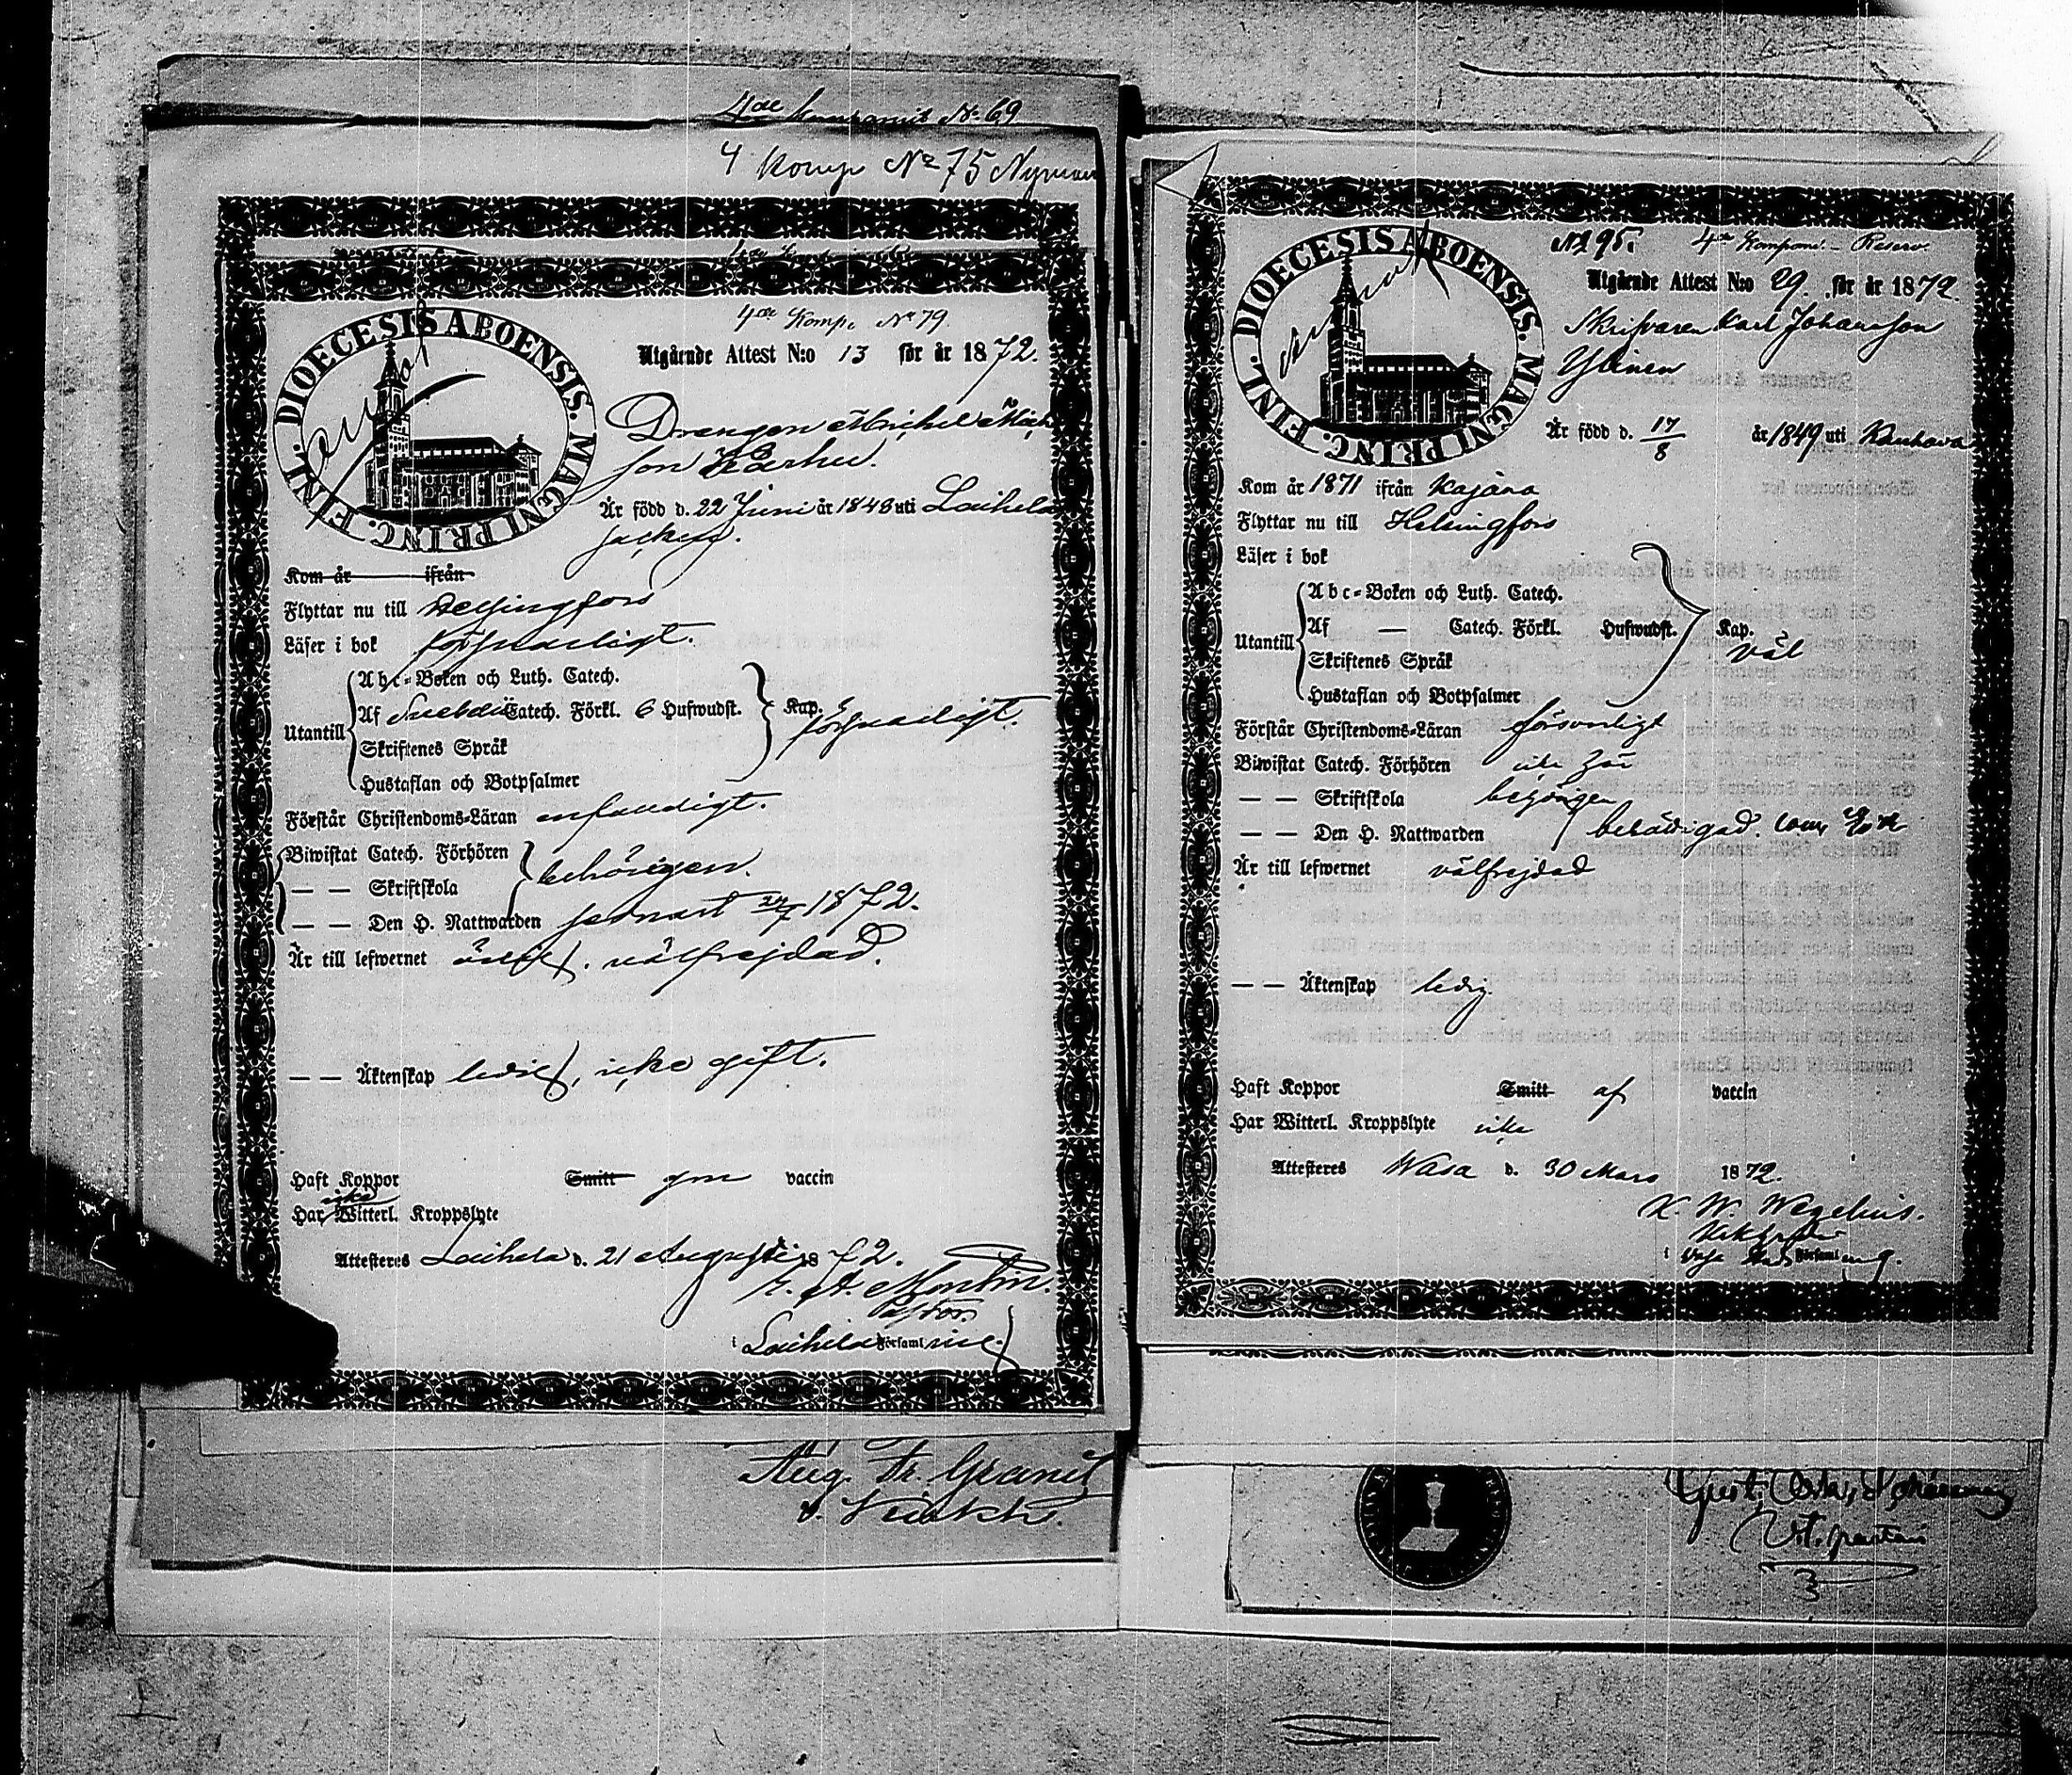 4de Kompanit No 69
4 Komp No 75 Nyman
DIOECESIS ABOENSIS. MAGNI PRINC. FINL.
4de Komp. No 79.
Utgående Attest N:o 13 för år 1872.
Drengen Michel Mich
son Kärhu.
Är född d. 22 Juni år 1848 uti Laihela
socken.
Kom år ifrån
Flyttar nu till Helsingfors
Läser i bok försvarligt.
Utantill
Abc-Boken och Luth. Catech.
Af Svebelii Catech. Förkl. 6 Hufwudst. Kap. försvarligt.
Skriftenes Språk
Hustaflan och Botpsalmer
Förstår Christendoms-Läran enfaldigt.
Biwistat Catech. Förhören
— — Skriftskola behörigen.
— — Den H. Nattwarden senast 1872.
Är till lefwernet välfrejdad.
— — Äktenskap ledig, icke gift.
Haft Koppor Smitt gm vaccin
icke
Har Witterl. Kroppslyte
Attesteres Laihela d. 21 Augusti 1872.
Pastor.
i Laihela Församl
Aug. Fr. Granit
DIOECESIS ABOENSIS. MAGNI PRINC. FINL.
No 95. 4de Kompani - Reserv.
Utgående Attest N:o 29. för år 1872.
Skrifvaren Karl Johansson
Ylinen
Är född d. 17/8 år 1849 uti Kauhava
Kom år 1871 ifrån Kajana
Flyttar nu till Helsingfors
Läser i bok
Utantill
Abc-Boken och Luth. Catech.
Af — Catech. Förkl. Hufwudst. Kap.
väl
Skriftenes Språk
Hustaflan och Botpsalmer
Förstår Christendoms-Läran försvarligt
Biwistat Catech. Förhören icke här
— — Skriftskola behörigen
— — Den H. Nattwarden
Är till lefwernet välfrejdad
— — Äktenskap ledig.
Haft Koppor Smitt af vaccin
Har Witterl. Kroppslyte icke
Attesteres Wasa d. 30 Mars 1872.
K. W. Wegelius.
i Församl